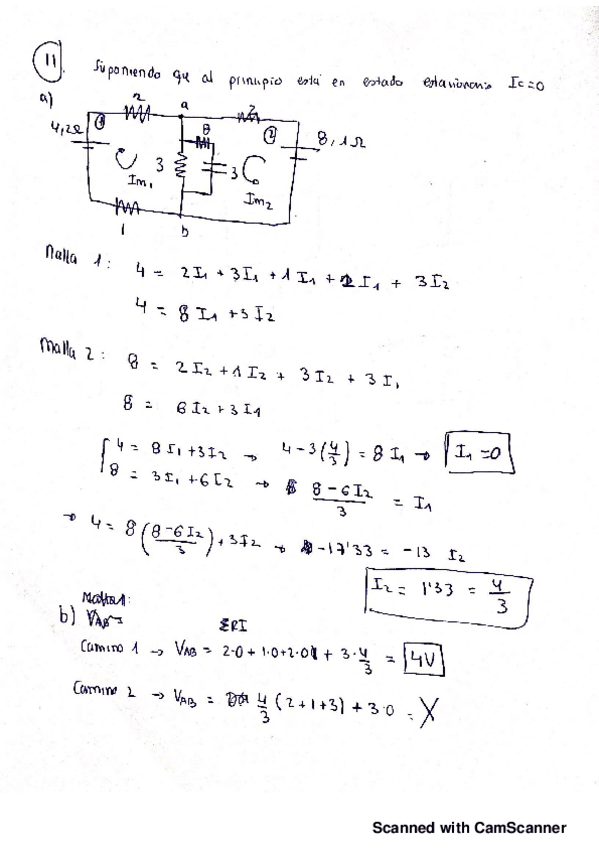 11. Suponiendo que al principio está en estado estacionario Ic=0
a)
2 a 2
1 8 2
4,2Ω 3 3 8,1Ω
Im1 Im2
1 b
Malla 1: 4 = 2I1 + 3I1 + 1I1 + 2I1 + 3I2
4 = 8I1 + 3I2
Malla 2: 8 = 2I2 + 1I2 + 3I2 + 3I1
8 = 6I2 + 3I1
4 = 8I1 + 3I2 → 4 - 3(4/3) = 8I1 → I1 = 0
8 = 3I1 + 6I2 → 8 - 6I2 / 3 = I1
→ 4 = 8(8 - 6I2 / 3) + 3I2 → -17'33 = -13 I2
I2 = 1'33 = 4/3
Malla 1:
b) VAB
ΣRI
Camino 1 → VAB = 2·0 + 1·0 + 2·0 + 3·4/3 = 4V
Camino 2 → VAB = 4/3 (2+1+3) + 3·0 = X
Scanned with CamScanner